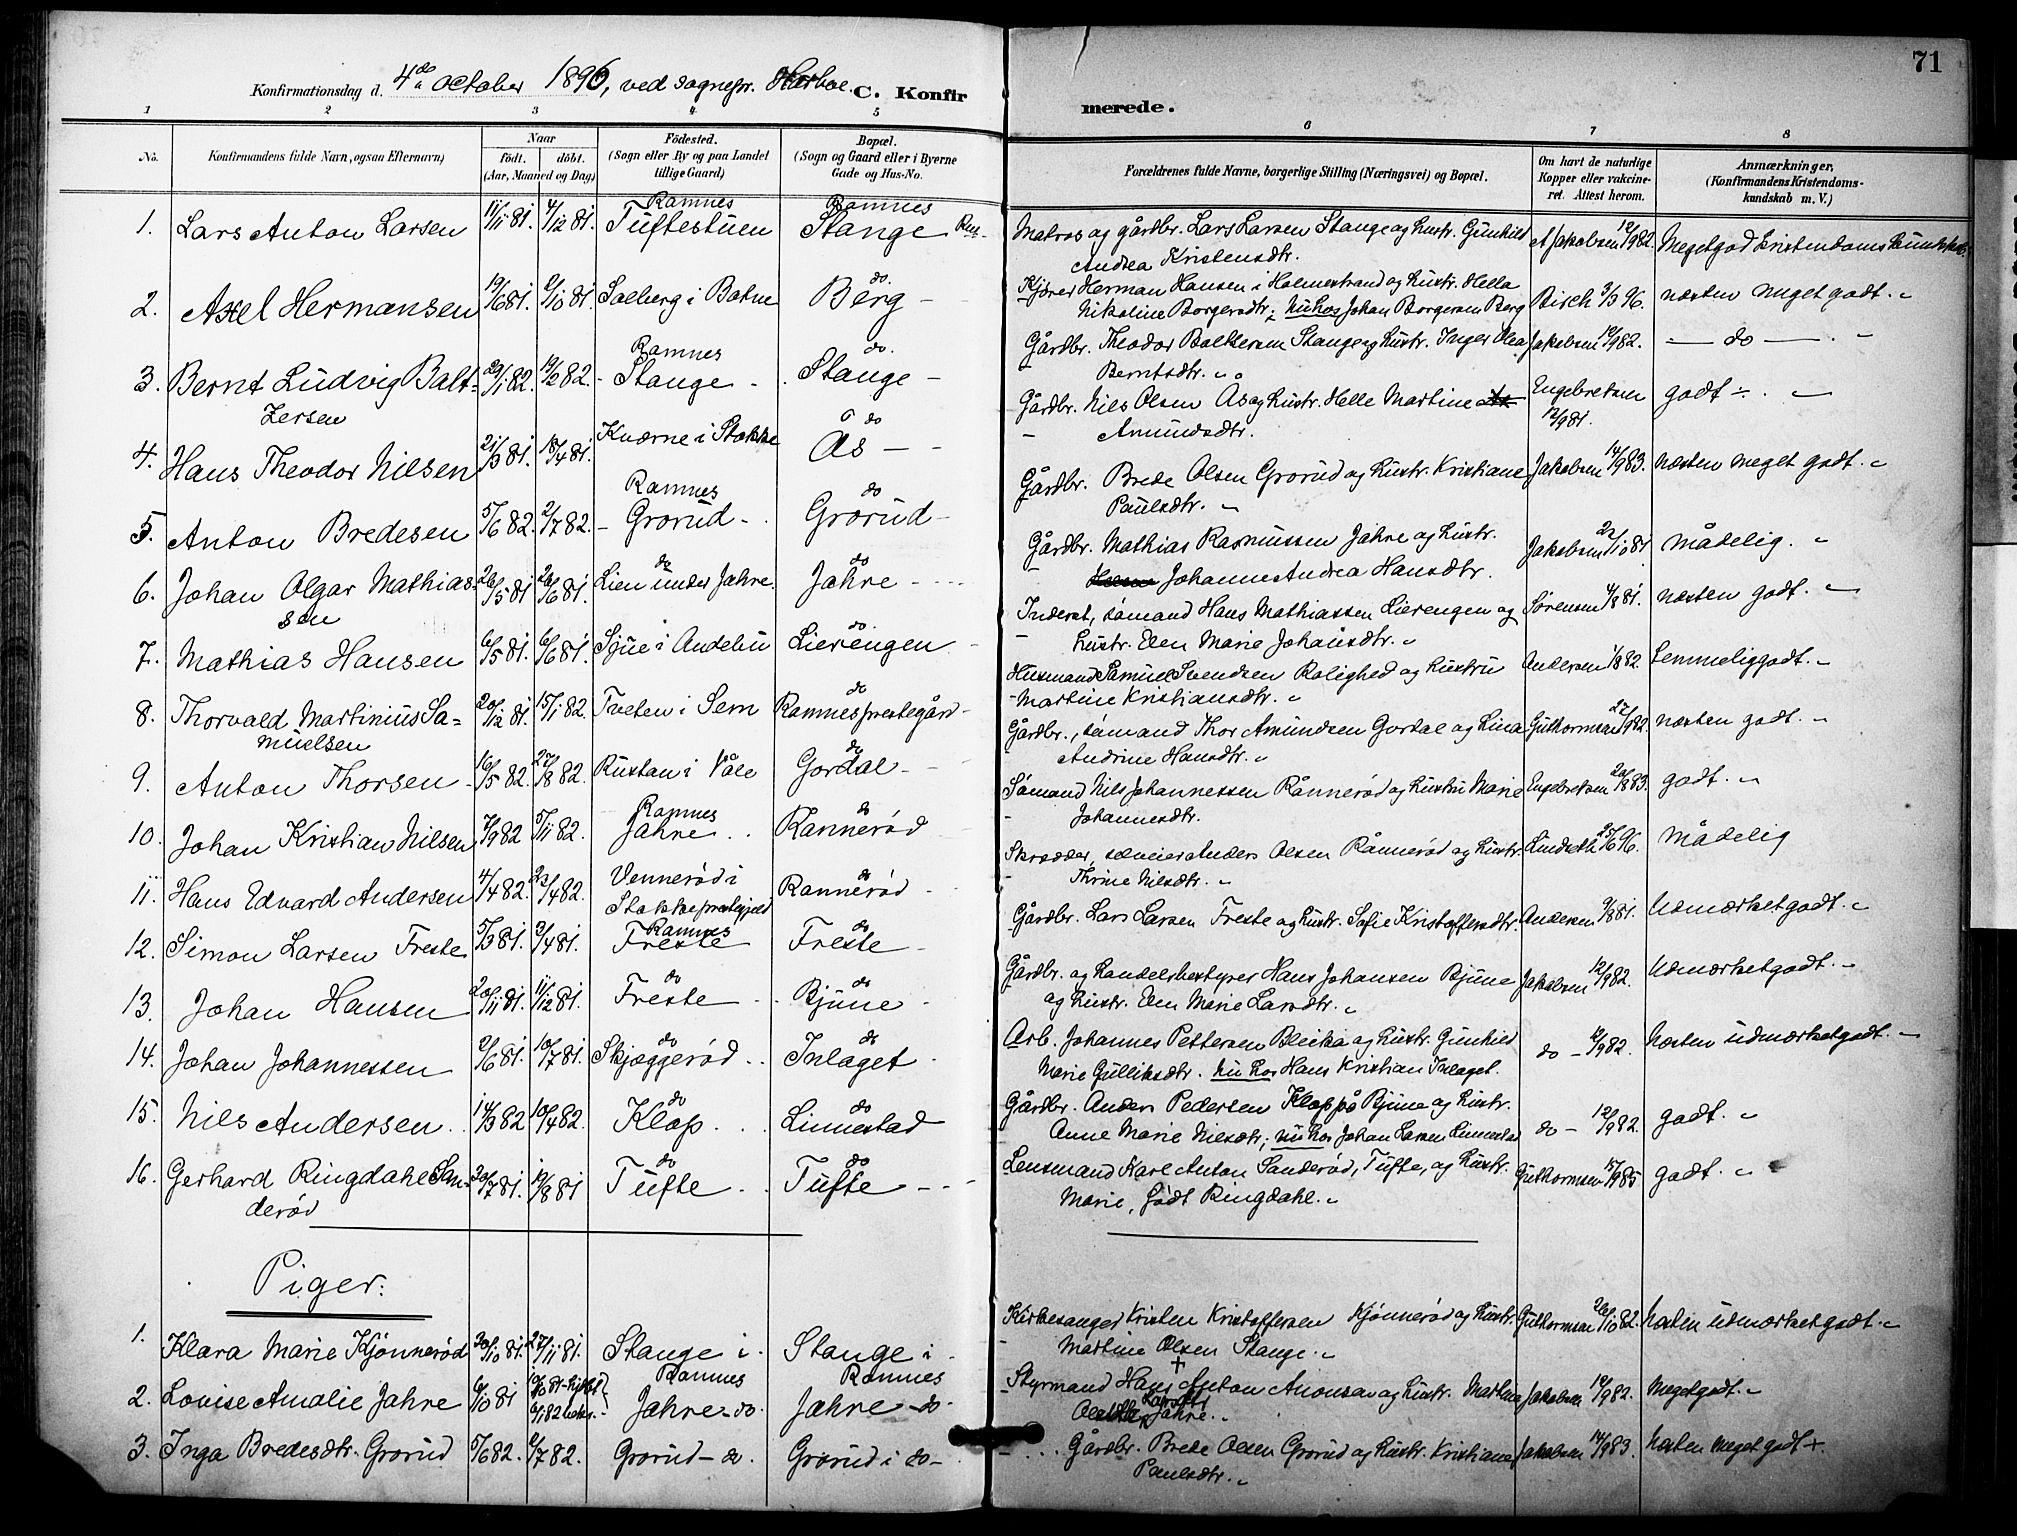 71
Konfirmationsdag d. 4de October 1896, ved sognepr. Harboe. C. Konfirmerede.
1 2 3 4 5 6 7 8
No. Konfirmandens fulde Navn, ogsaa Efternavn) Naar født. døbt. (Aar, Maaned og Dag) Fødested. (Sogn eller By og paa Landet tillige Gaard) Bopæl. (Sogn og Gaard eller i Byerne Gade og Hus-No. Forældrenes fulde Navne, borgerlige Stilling (Næringsvei) og Bopæl. Om havt de naturlige Kopper eller vakcineret. Attest herom. Anmærkninger, (Konfirmandens Kristendomskundskab m. V.)
1. Lars Anton Larsen 11/11 81. 4/12 81. Ramnes Tuftestuen Ramnes Stange Matros og gårdbr. Lars Larsen Stange og hustr. Gunhild Andrea Kristensdtr. Jakobsen 12/9 82. Meget god Kristendomskundskab.
2. Axel Hermansen 19/6 81. 2/10 81. Solberg i Botne do. Berg Kjører Herman Hansen i Holmestrand og hustr. Hella Nikoline Borgersdtr; nu hos Johan Borgersen Berg Birch 3/3 96. næsten meget godt.
3. Bernt Ludvig Baltzersen 29/1 82. 12/2 82. Ramnes Stange do. Stange Gårdbr. Theodor Baltzersen Stange og hustr. Inger Olea Berntsdtr. Jakobsen 12/9 82. do
4. Hans Theodor Nilsen 21/3 81. 18/4 81. Kværne i Stokke do Ås Gårdbr. Nils Olsen As og hustr. Helle Martine Amundsdtr. Engebretsen 12/9 81. godt
5. Anton Bredesen 5/6 82. 2/7 82. Ramnes Grorud do Grorud Gårdbr. Brede Olsen Grorud og hustr. Kristiane Paulsdtr. Jakobsen 14/9 83. næsten meget godt.
6. Johan Olgar Mathiassen 26/5 81 26/6 81. do Lien under Jahre. do Jahre Gårdbr. Mathias Rasmussen Jahre og hustr. Johanne Andrea Hansdtr. Jakobsen 22/10 81 mådelig.
7. Mathias Hansen 6/5 81. 6/6 81. Sjue i Andebu do. Lierengen Inderst, sømand Hans Mathiassen Lierengen og hustr. Elen Marie Johansdtr. Sørensen 4/8 81. næsten godt.
8. Thorvald Martinius Samuelsen 20/12 81. 15/1 82. Tveten i Sem do Ramnes prestegård Husmand Samuel Svendsen Rolighed og hustru Martine Kristiansdtr. Andersen 1/8 82. Temmelig godt.
9. Anton Thorsen 16/5 82. 27/8 82. Rustan i Våle do Gordal Gårdbr., sømand Thor Amundsen Gordal og Lina Andrine Hansdtr. Guthormsen 27/9 82. næsten godt.
10. Johan Kristian Nilsen 7/9 82 5/11 82. Ramnes Jahre do Rannerød Sømand Nils Johannessen Rånnerød og hustru Marie Johannesdtr. Engebretsen 20/8 83. godt.
11. Hans Edvard Andersen 4/4 82. 23/4 82. Vennerød i Stokke prestegjeld do Rannerød Skræder, selveier Anders Olsen Rånnerød og hustr. Thrine Nilsdtr. Lindseth 25/6 96. Mådelig
12. Simon Larsen Freste 5/3 81. 3/4 81. Ramnes Freste do Freste Gårdbr. Lars Larsen Freste og hustr. Sofie Kristoffersdtr. Andersen 9/8 81. Udmærket godt.
13. Johan Hansen 20/11 81. 11/12 81. do Freste do Bjune Gårdbr. og handelsbestyrer Hans Johansen Bjune og hustr. Elen Marie Larsdtr. Jakobsen 12/9 82. Udmærket godt.
14. Johan Johannessen 2/6 81. 10/7 81. do Skjæggerød do Inlaget Arb. Johannes Pettersen Bleika og hustr. Gunhild Marie Gulliksdtr. nu hos Hans Kristian Inlaget. do 12/9 82. Næsten udmærket godt.
15. Nils Andersen 14/3 82 10/4 82. do Klop do Linnestad Gårdbr. Anders Pedersen Klop på Bjune og hustr. Anne Marie Nilsdtr; nu hos Johan Larsen Linnestad do 12/9 82. godt.
16. Gerhard Ringdahl Sanderød 20/7 81. 19/8 81 do Tufte do Tufte Lensmand Karl Anton Sanderød, Tufte, og hustr. Marie, født Ringdahl. Guthormsen 15/9 85 godt.
Piger.
1. Klara Marie Kjønnerød 20/10 81. 27/11 81. Stange i Ramnes Stange i Ramnes Kirkesanger Kristen Kristoffersen Kjønnerød og hustr. Martine Olsen Stange. Guthormsen 26/10 82. Næsten udmærket godt.
2. Lovise Amalie Jahre 6/10 81 10/10 81 6/1 82 Jahre do. Jahre do. Styrmand Hans Anton Aronsen og hustr. Martine Larsdtr Jahre. Jakobsen 12/9 82. Meget godt.
3. Inga Bredesdtr. Grorud 5/6 82. 2/7 82. Grorud do. Grorud i do Gårdbr. Brede Olsen Grorud og hustr. Kristiane Paulsdtr. Jakobsen 14/9 83. Næsten meget godt